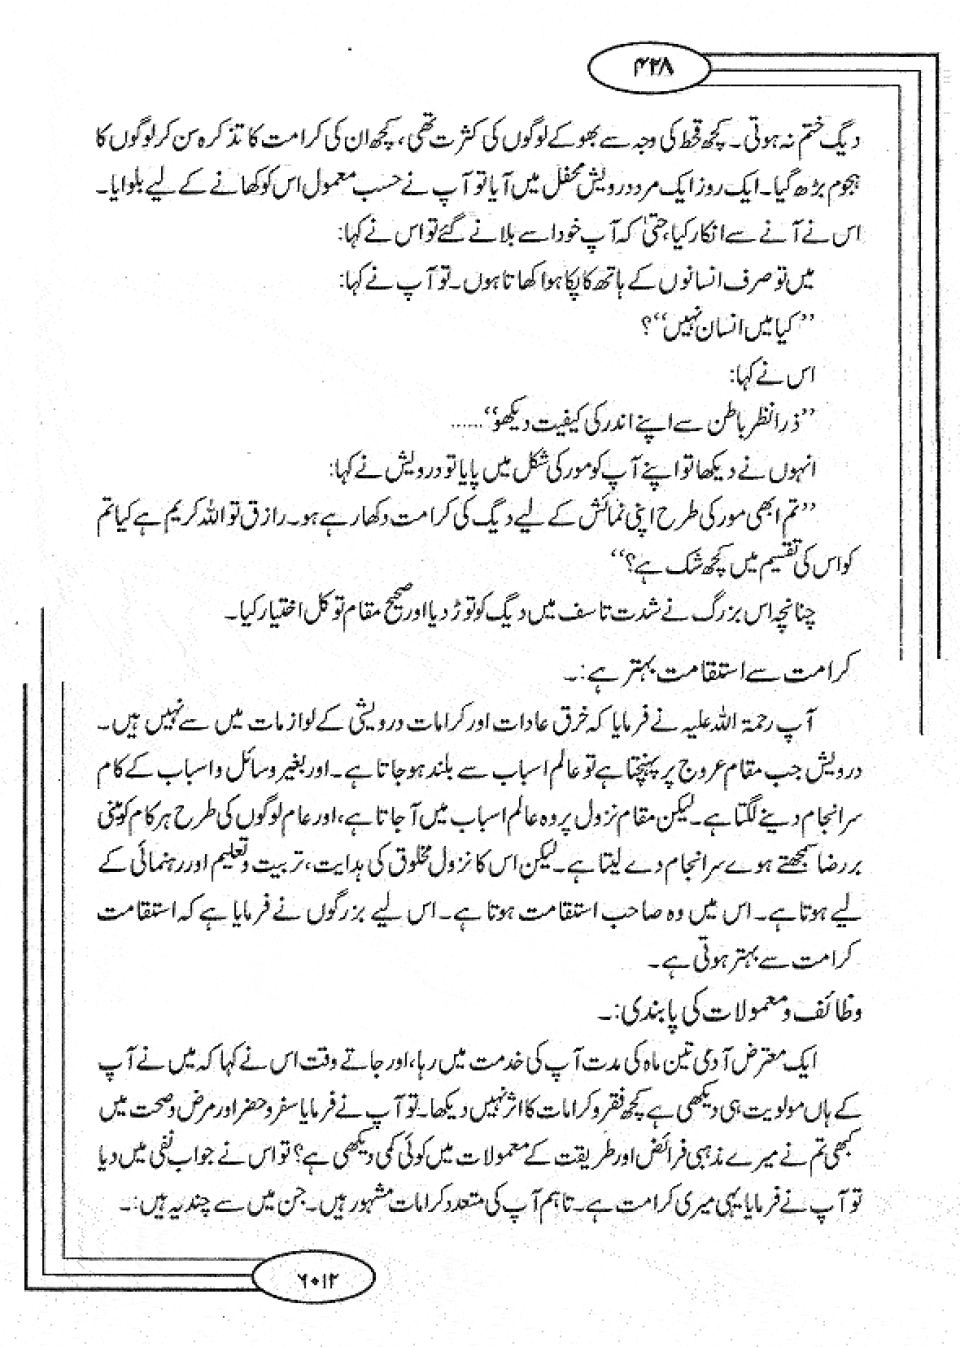 ۴۲۸
دیگ ختم نہ ہوتی۔ کچھ قحط کی وجہ سے بھوکے لوگوں کی کثرت تھی، کچھ ان کی کرامت کا تذکرہ سن کر لوگوں کا
ہجوم بڑھ گیا۔ ایک روز ایک مرد درویش محفل میں آیا تو آپ نے حسب معمول اس کو کھانے کے لیے بلوایا۔
اس نے آنے سے انکار کیا، حتیٰ کہ آپ خود اسے بلانے گئے تو اس نے کہا:
میں تو صرف انسانوں کے ہاتھ کا پکا ہوا کھاتا ہوں۔ تو آپ نے کہا:
”کیا میں انسان نہیں“؟
اس نے کہا:
”ذرا نظر باطن سے اپنے اندر کی کیفیت دیکھو“......
انہوں نے دیکھا تو اپنے آپ کو مور کی شکل میں پایا تو درویش نے کہا:
”تم ابھی مور کی طرح اپنی نمائش کے لیے دیگ کی کرامت دکھا رہے ہو۔ رازق تو اللہ کریم ہے کیا تم
کو اس کی تقسیم میں کچھ شک ہے؟“
چنانچہ اس بزرگ نے شدت تاسف میں دیگ کو توڑ دیا اور صحیح مقام توکل اختیار کیا۔
کرامت سے استقامت بہتر ہے:۔
آپ رحمۃ اللہ علیہ نے فرمایا کہ خرق عادات اور کرامات درویشی کے لوازمات میں سے نہیں ہیں۔
درویش جب مقام عروج پر پہنچتا ہے تو عالم اسباب سے بلند ہو جاتا ہے۔ اور بغیر وسائل و اسباب کے کام
سرانجام دینے لگتا ہے۔ لیکن مقام نزول پر وہ عالم اسباب میں آ جاتا ہے، اور عام لوگوں کی طرح ہر کام کو مبنی
بر رضا سمجھتے ہوے سرانجام دے لیتا ہے۔ لیکن اس کا نزول مخلوق کی ہدایت، تربیت و تعلیم اور رہنمائی کے
لیے ہوتا ہے۔ اس میں وہ صاحب استقامت ہوتا ہے۔ اس لیے بزرگوں نے فرمایا ہے کہ استقامت
کرامت سے بہتر ہوتی ہے۔
وظائف و معمولات کی پابندی:۔
ایک معترض آدمی تین ماہ کی مدت آپ کی خدمت میں رہا، اور جاتے وقت اس نے کہا کہ میں نے آپ
کے ہاں مولویت ہی دیکھی ہے کچھ فقر و کرامات کا اثر نہیں دیکھا۔ تو آپ نے فرمایا سفر و حضر اور مرض و صحت میں
کبھی تم نے میرے مذہبی فرائض اور طریقت کے معمولات میں کوئی کمی دیکھی ہے؟ تو اس نے جواب نفی میں دیا
تو آپ نے فرمایا یہی میری کرامت ہے۔ تاہم آپ کی متعدد کرامات مشہور ہیں۔ جن میں سے چند یہ ہیں:۔
۶۰۱۲